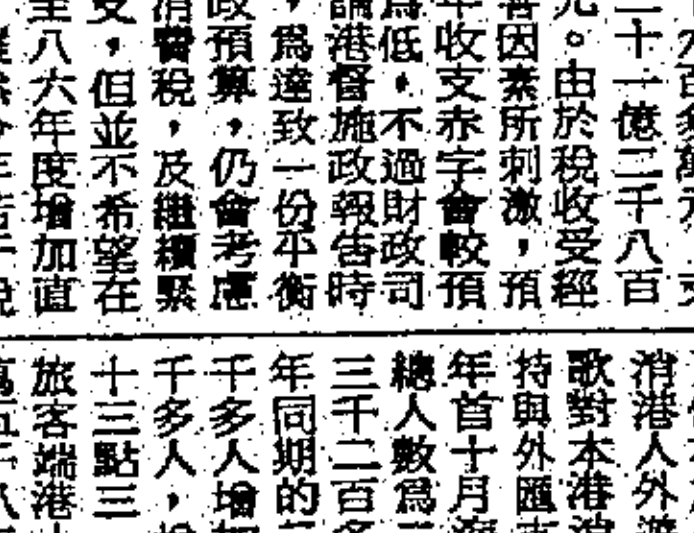 六百多萬元，支
二十一億二千八百
元。由於稅收受經
善因素所刺激，預
年收支赤字會較預
爲低，不過財政司
論港督施政報告時
，爲達致一份平衡
政預算，仍會考慮
消費稅，及繼續緊
受，但並不希望在
至八六年度增加直
消港人外遊
歌對本港消
持與外匯市
年首十月
總人數爲
三千二百多
年同期的
千多人增加
千多人，
十三點三
旅客端港
萬五千八